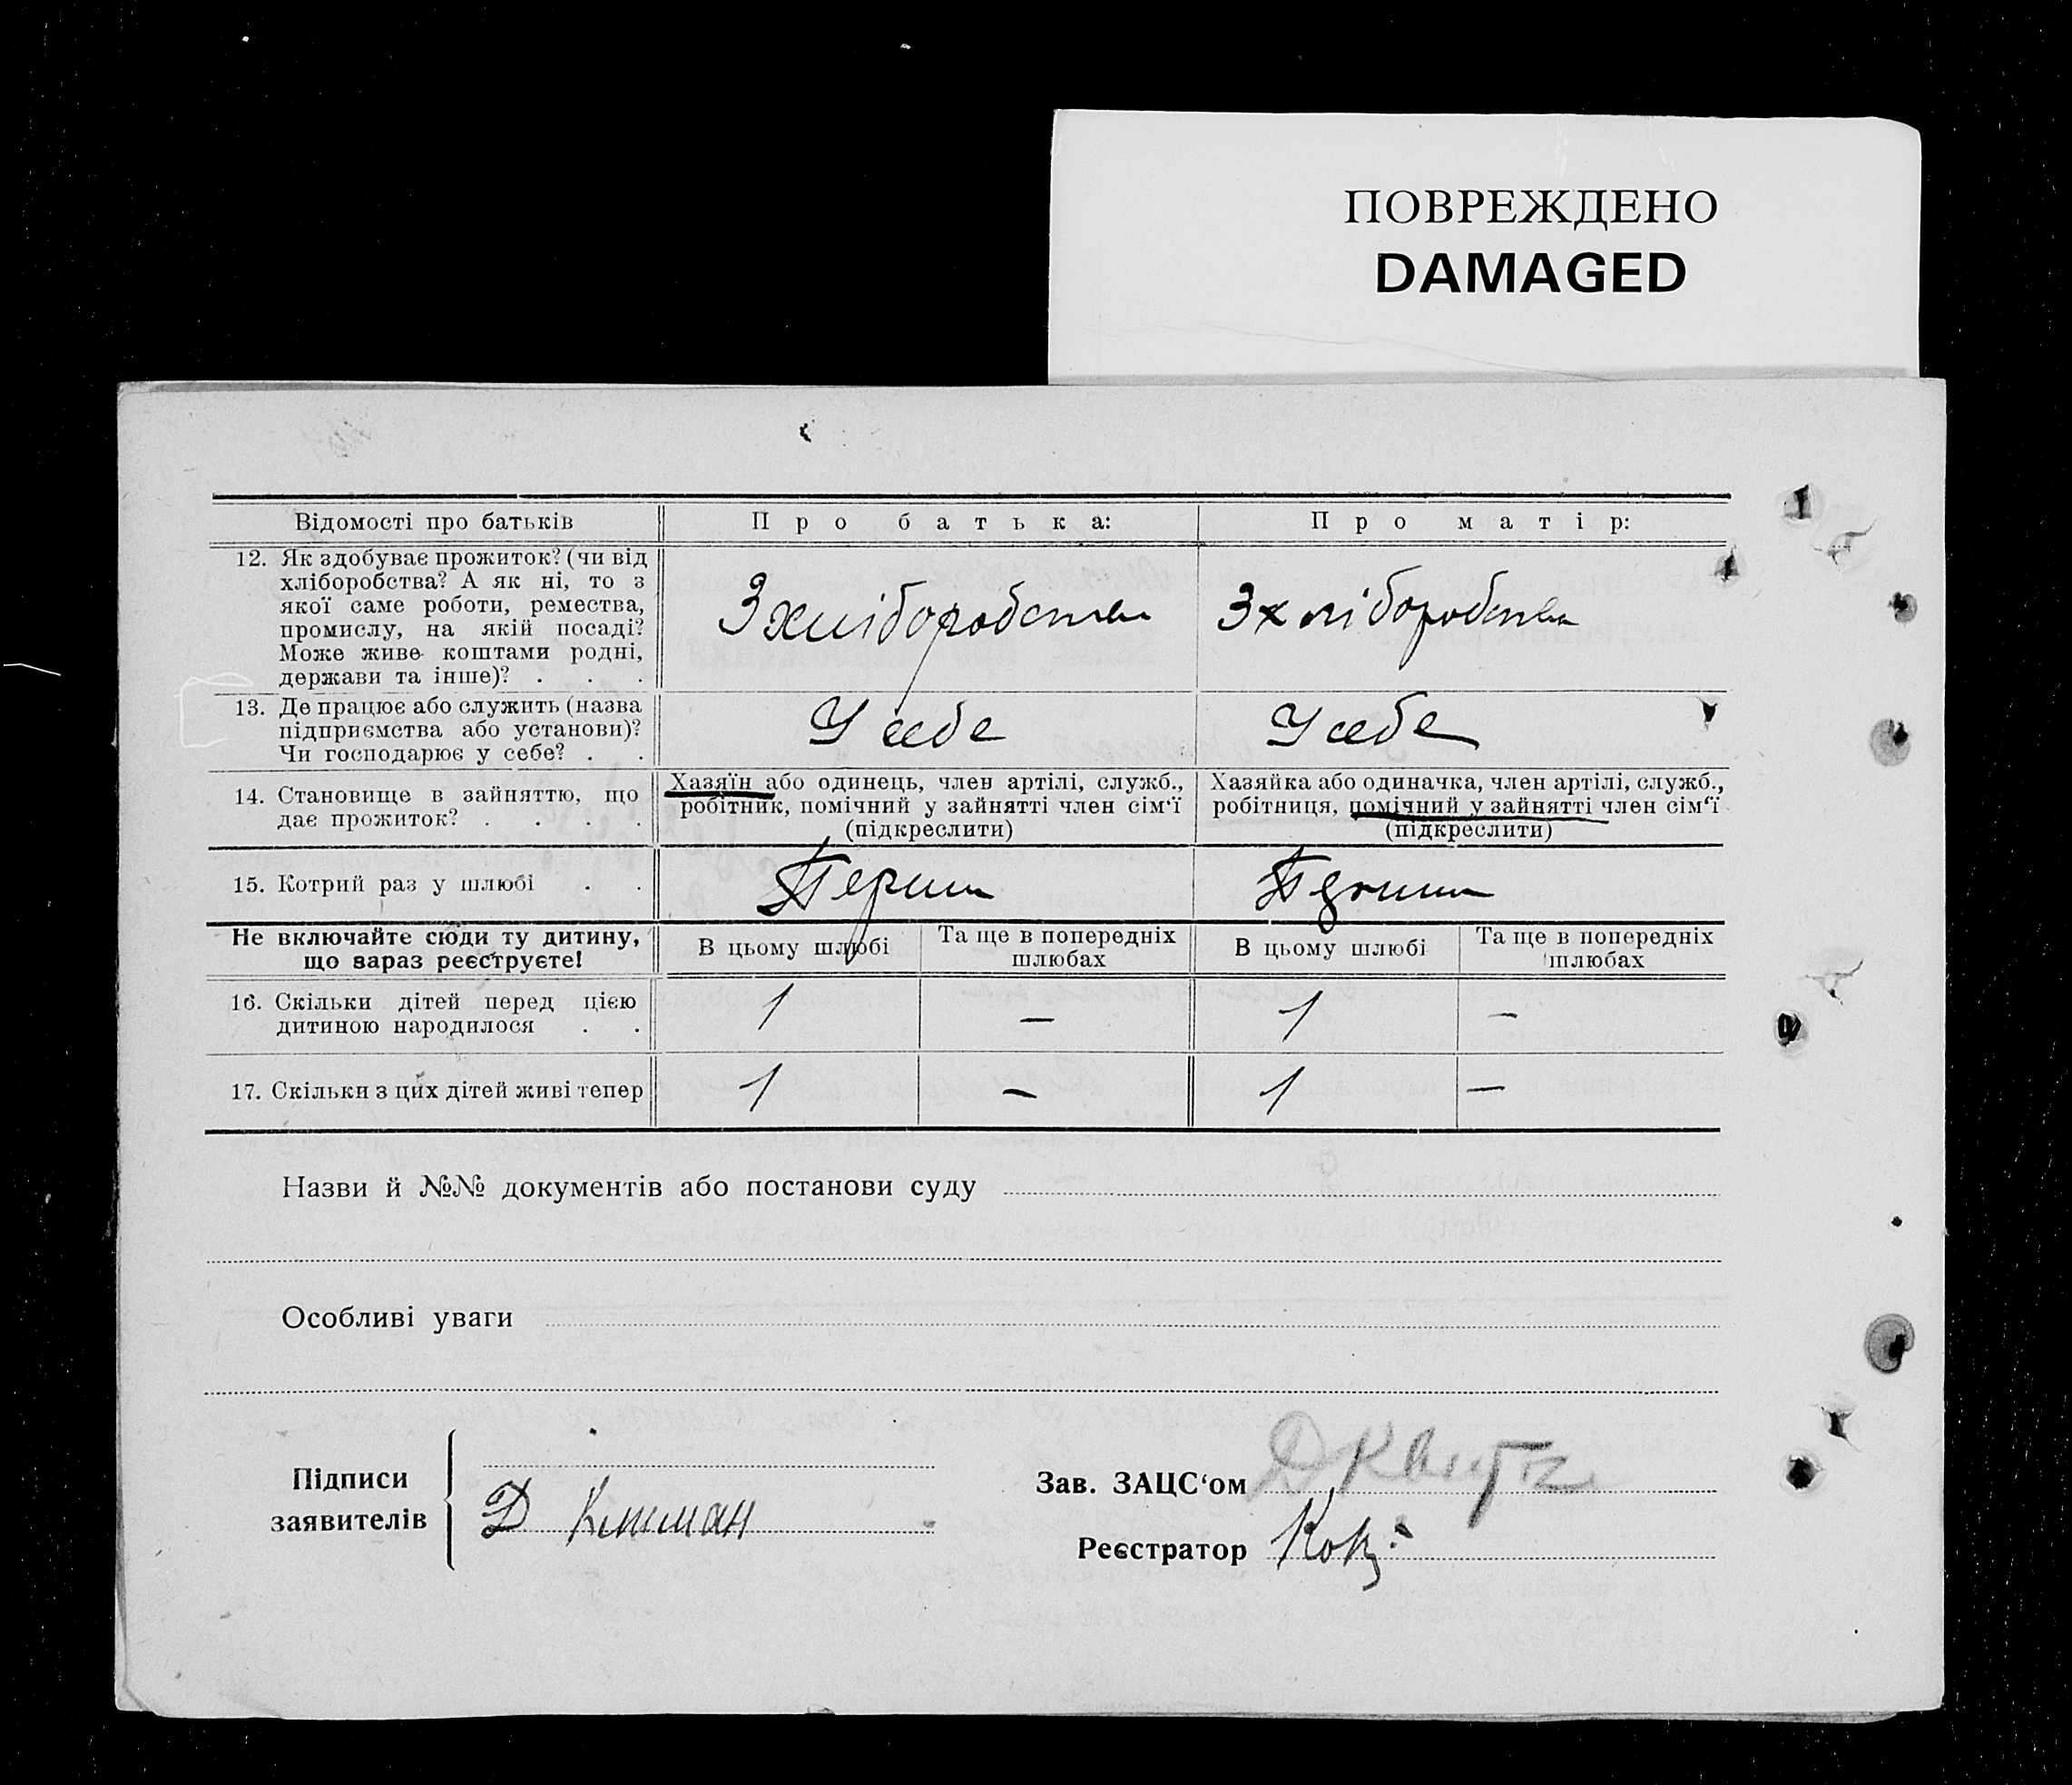 ПОВРЕЖДЕНО
DAMAGED
Відомості про батьків
Про батька:
Про матір:
12. Як здобуває прожиток? (чи від
хліборобства? А як ні, то з
якої саме роботи, ремества,
промислу, на якій посаді?
Може живе коштами родні,
держави та інше)? . . .
З хліборобства
З хліборобства
13. Де працює або служить (назва
підприємства або установи)?
Чи господарює у себе? . .
У себе
У себе
14. Становище в зайняттю, що
дає прожиток? . . . .
Хазяїн або одинець, член артілі, служб.,
робітник, помічний у зайнятті член сім'ї
(підкреслити)
Хазяйка або одиначка, член артілі, служб.,
робітниця, помічний у зайнятті член сім'ї
(підкреслити)
15. Котрий раз у шлюбі . .
Перший
Перший
Не включайте сюди ту дитину,
що зараз реєструєте!
В цьому шлюбі
Та ще в попередніх
шлюбах
В цьому шлюбі
Та ще в попередніх
шлюбах
16. Скільки дітей перед цією
дитиною народилося . .
1
—
1
—
17. Скільки з цих дітей живі тепер
1
—
1
—
Назви й №№ документів або постанови суду
Особливі уваги
Підписи
заявителів
Д
Зав. ЗАЦС'ом
Реєстратор